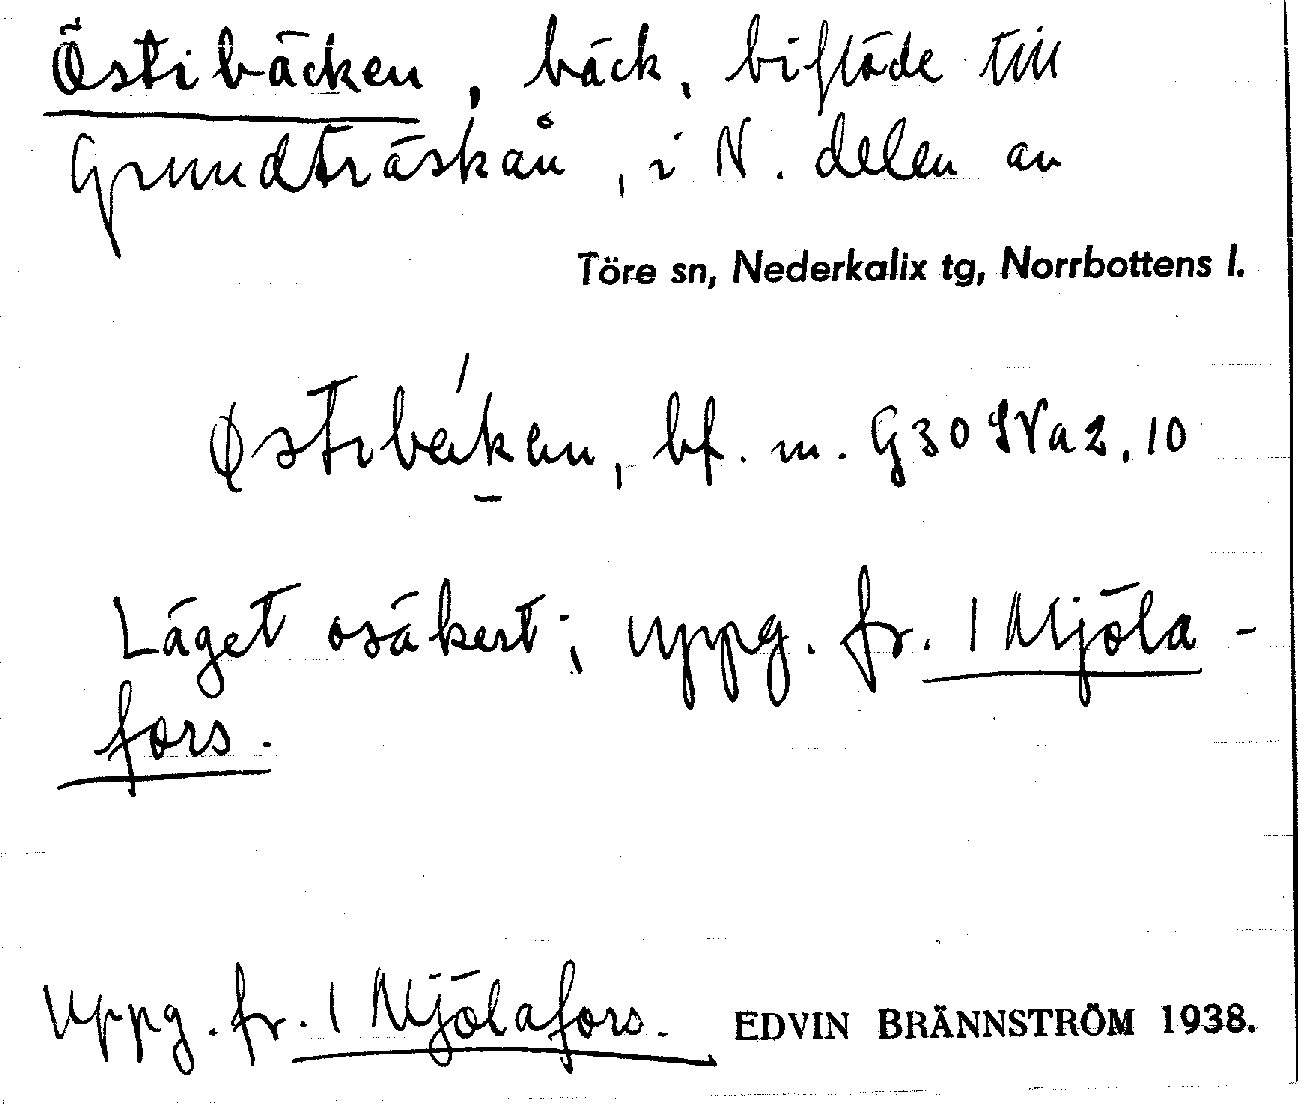 Östibäcken, bäck, biflöde till
Grundträskån, i N. delen av
Töre sn, Nederkalix tg, Norrbottens l.
Østibekæn, bf. m. G30 SVa2.10
Läget osäkert; uppg. fr. 1 Mjöla-
fors.
Uppg. fr. 1 Mjölafors. EDVIN BRÄNNSTRÖM 1938.